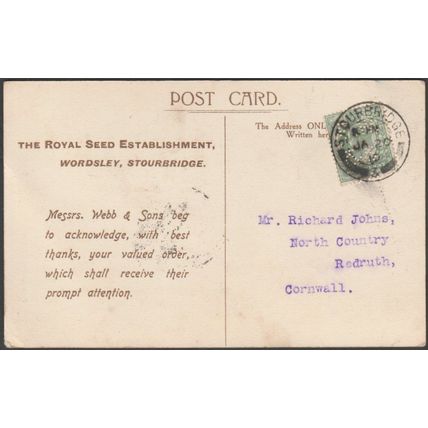 POST CARD.
The Address ONL
Written her
THE ROYAL SEED ESTABLISHMENT,
WORDSLEY, STOURBRIDGE.
Messrs. Webb & Sons beg
to acknowledge, with best
thanks, your valued order,
which shall receive their
prompt attention.
STOURBRIDGE
JA 20
Mr. Richard Johns,
North Country
Redruth,
Cornwall.